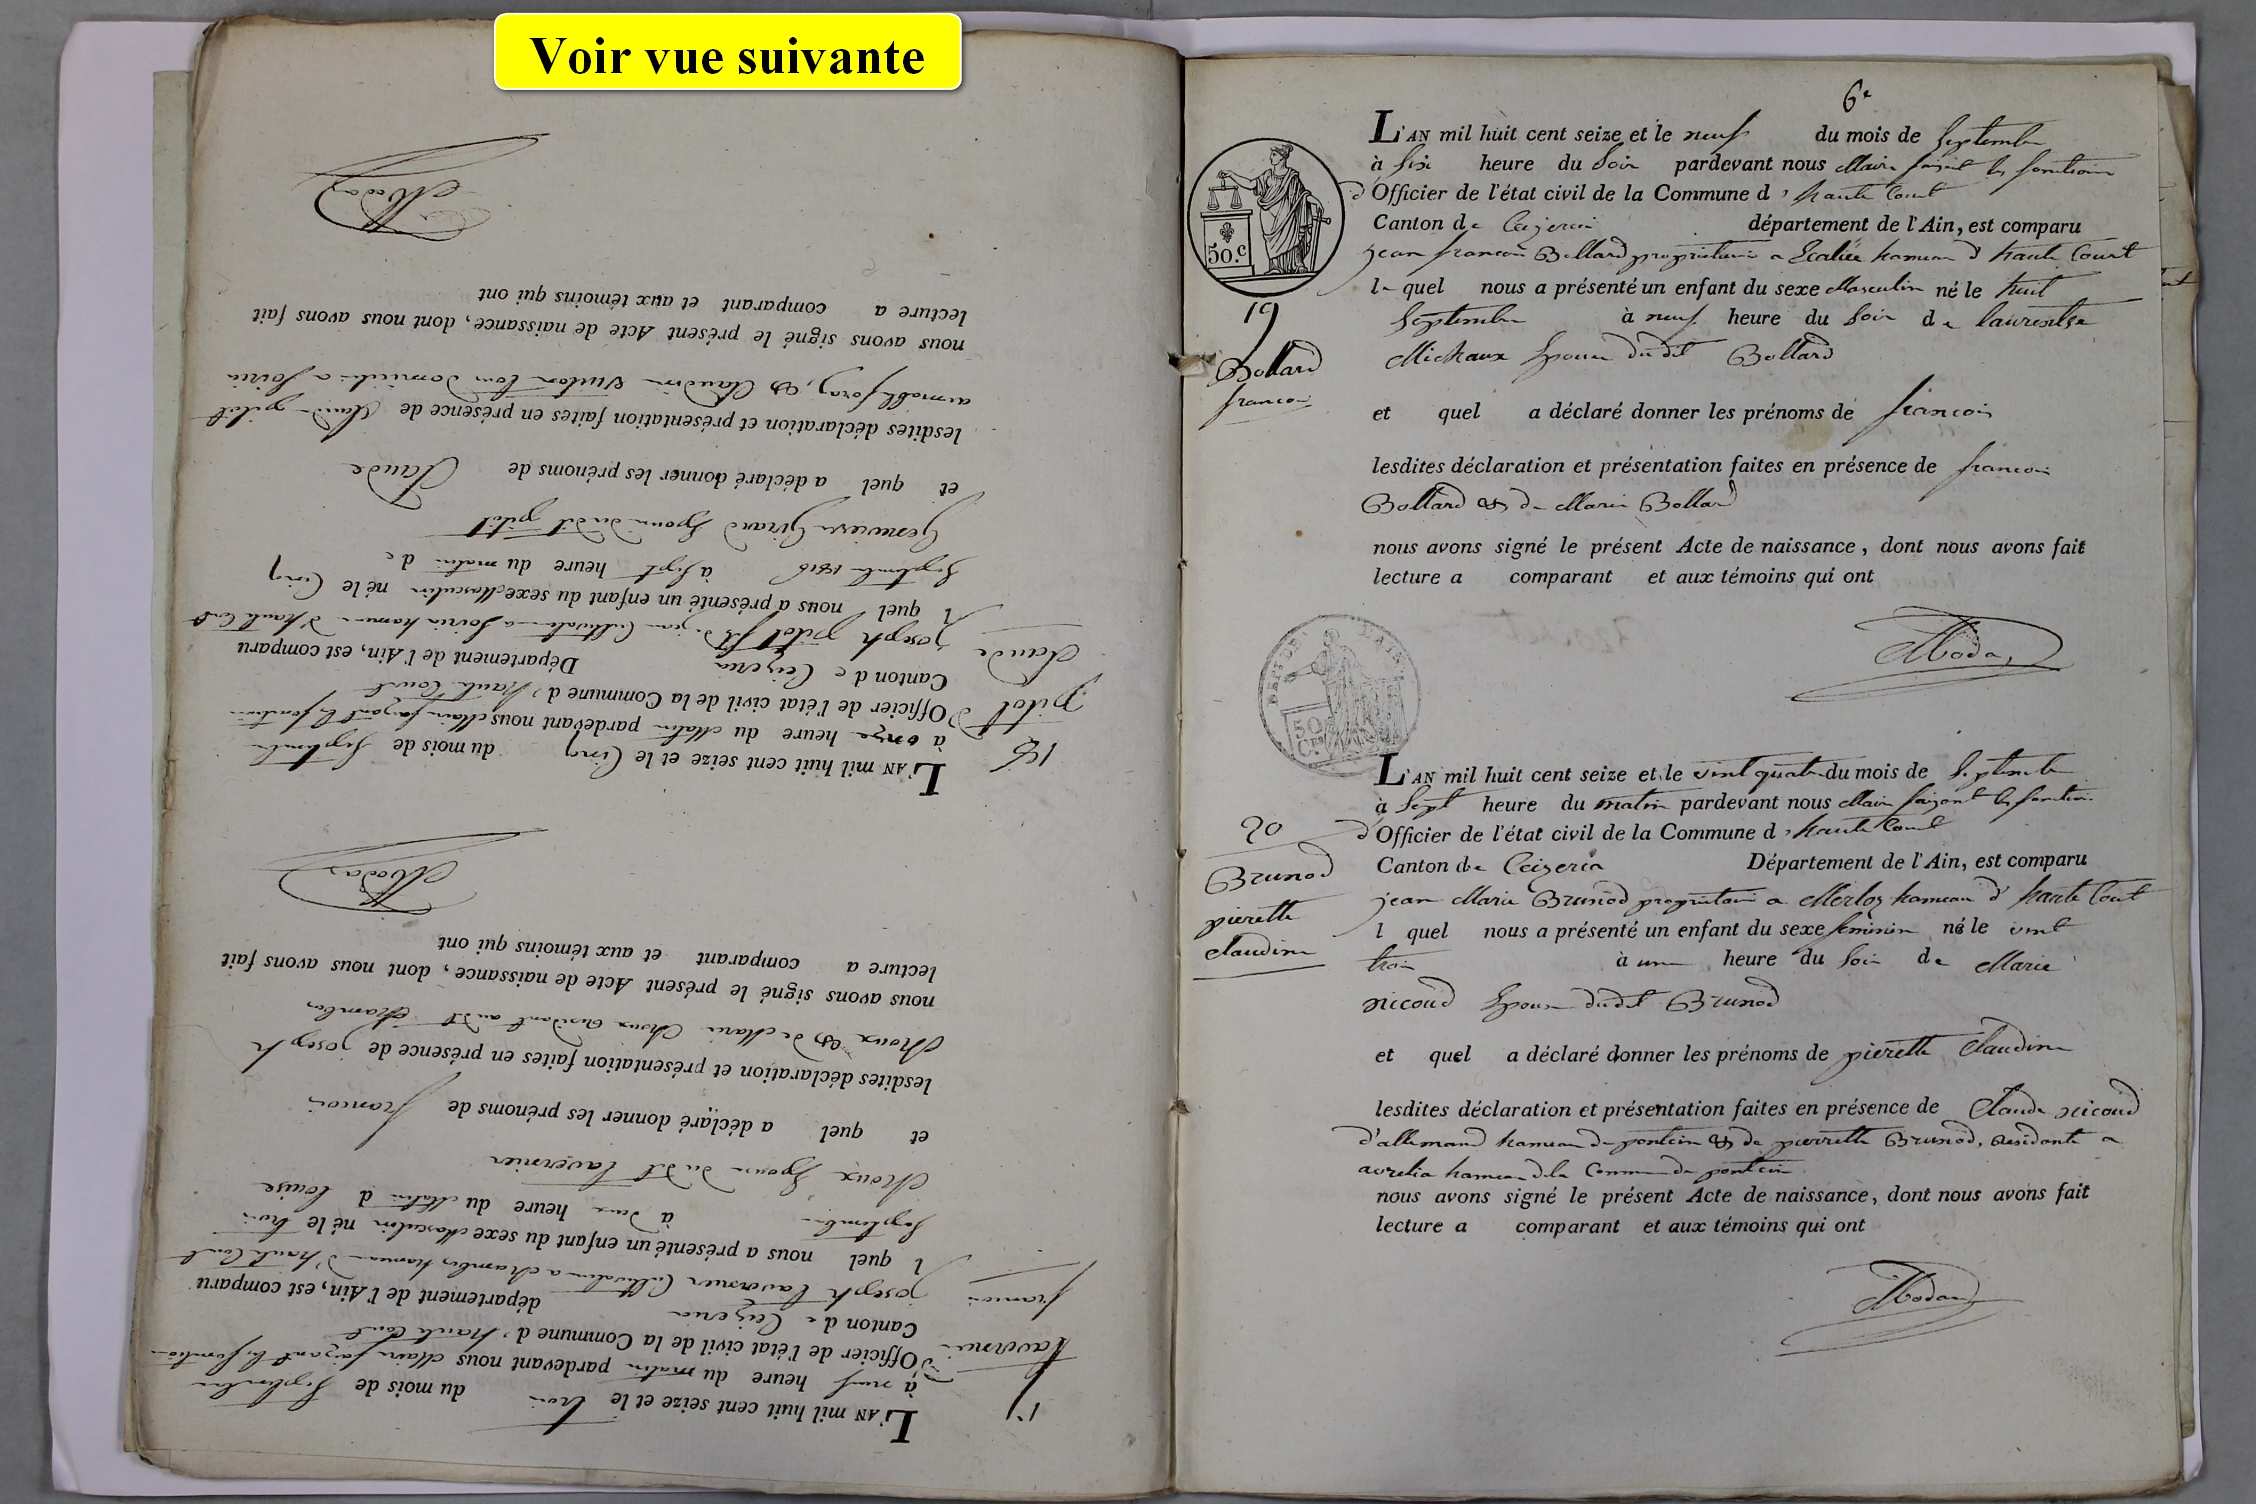 Voir vue suivante
17
Taverni
francoi
L'AN mil huit cent seize et le trois du mois de Septembre
à neuf heure du matin pardevant nous Maire faizant les fonction
d'Officier de l'état civil de la Commune d' haute Court
Canton de Ceizeria département de l'Ain, est comparu
joseph tavernier Cultivateur a Chambos hameau d'haute Court
l quel nous a présenté un enfant du sexe Masculin né le trois
Septembre à deux heure du Matin d louise
Moux Epouse du dit tavernier
et quel a déclaré donner les prénoms de francoi
lesdites déclaration et présentation faites en présence de joseph
Moux & de Marie Moux residant audit Chambos
nous avons signé le présent Acte de naissance, dont nous avons fait
lecture a comparant et aux témoins qui ont
Moday
18
pitol
Claude
L'AN mil huit cent seize et le Cinq du mois de Septembre
à onze heure du Matin pardevant nous Maire faizant les fonction
d'Officier de l'état civil de la Commune d' haute Court
Canton de Ceizeria Département de l'Ain, est comparu
joseph pitol fils de jean Cultivateur a Soiria hameau d'haute Court
l quel nous a présenté un enfant du sexe Masculin né le Cinq
Septembre 1816 à Sept heure du matin de
Genevieve Girard Epouse du dit pitol
et quel a déclaré donner les prénoms de Claude
lesdites déclaration et présentation faites en présence de Claude pitol
& Claudine tous domiciliés a Soiria
nous avons signé le présent Acte de naissance, dont nous avons fait
lecture a comparant et aux témoins qui ont
Moday
6e
50.c
19
Bollard
francoi
L'AN mil huit cent seize et le neuf du mois de Septembre
à Six heure du Soir pardevant nous Maire faizant les fonctions
d'Officier de l'état civil de la Commune d' haute Court
Canton de Ceizeria département de l'Ain, est comparu
jean francoi Bollard proprietaire a hameau d' haute Court
le quel nous a présenté un enfant du sexe Masculin né le huit
Septembre à neuf heure du Soir de laurentze
Michaux Epouse du dit Bollard
et quel a déclaré donner les prénoms de francois
lesdites déclaration et présentation faites en présence de francoi
Bollard & de Marie Bollard
nous avons signé le présent Acte de naissance, dont nous avons fait
lecture a comparant et aux témoins qui ont
Moday
DEPT DE L'AIN
50 Ces
20
Brunod
pierette
claudine
L'AN mil huit cent seize et le vint quatre du mois de Septembre
à Sept heure du matin pardevant nous Maire faizant les fonction
d'Officier de l'état civil de la Commune d' haute Court
Canton de Ceizeria Département de l'Ain, est comparu
jean Marie Brunod proprietaire a Merloz hameau d' haute Court
l quel nous a présenté un enfant du sexe feminin né le vint
troi à une heure du Soir de Marie
nicoud Epouse dudit Brunod
et quel a déclaré donner les prénoms de pierette Claudine
lesdites déclaration et présentation faites en présence de Claude nicoud
d'allemand hameau de poncin & de pierrette Brunod, residante a
avrelia hameau de la Commune de poncin
nous avons signé le présent Acte de naissance, dont nous avons fait
lecture a comparant et aux témoins qui ont
Moday